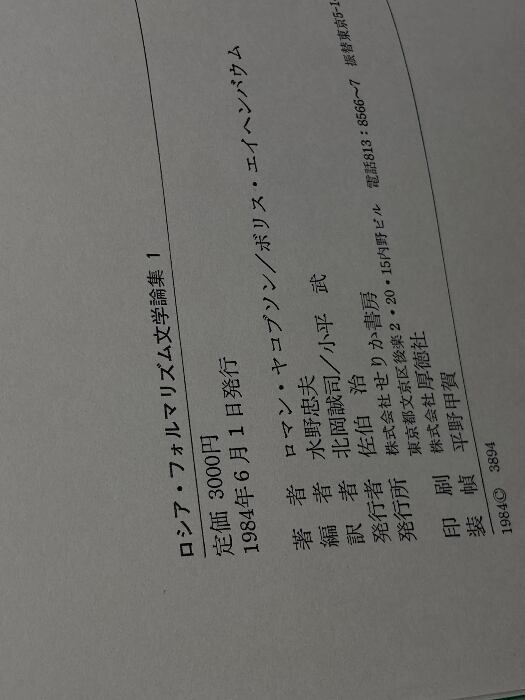 ロシア・フォルマリズム文学論集 1
定価 3000円
1984年6月1日発行
著者 ロマン・ヤコブソン／ボリス・エイヘンバウム
編者 水野忠夫
訳者 北岡誠司／小平 武
発行者 佐伯 治
発行所 株式会社せりか書房
東京都文京区後楽2・20・15内野ビル 電話813：8566〜7 振替東京5-1
印刷 株式会社厚徳社
装幀 平野甲賀
1984© 3894